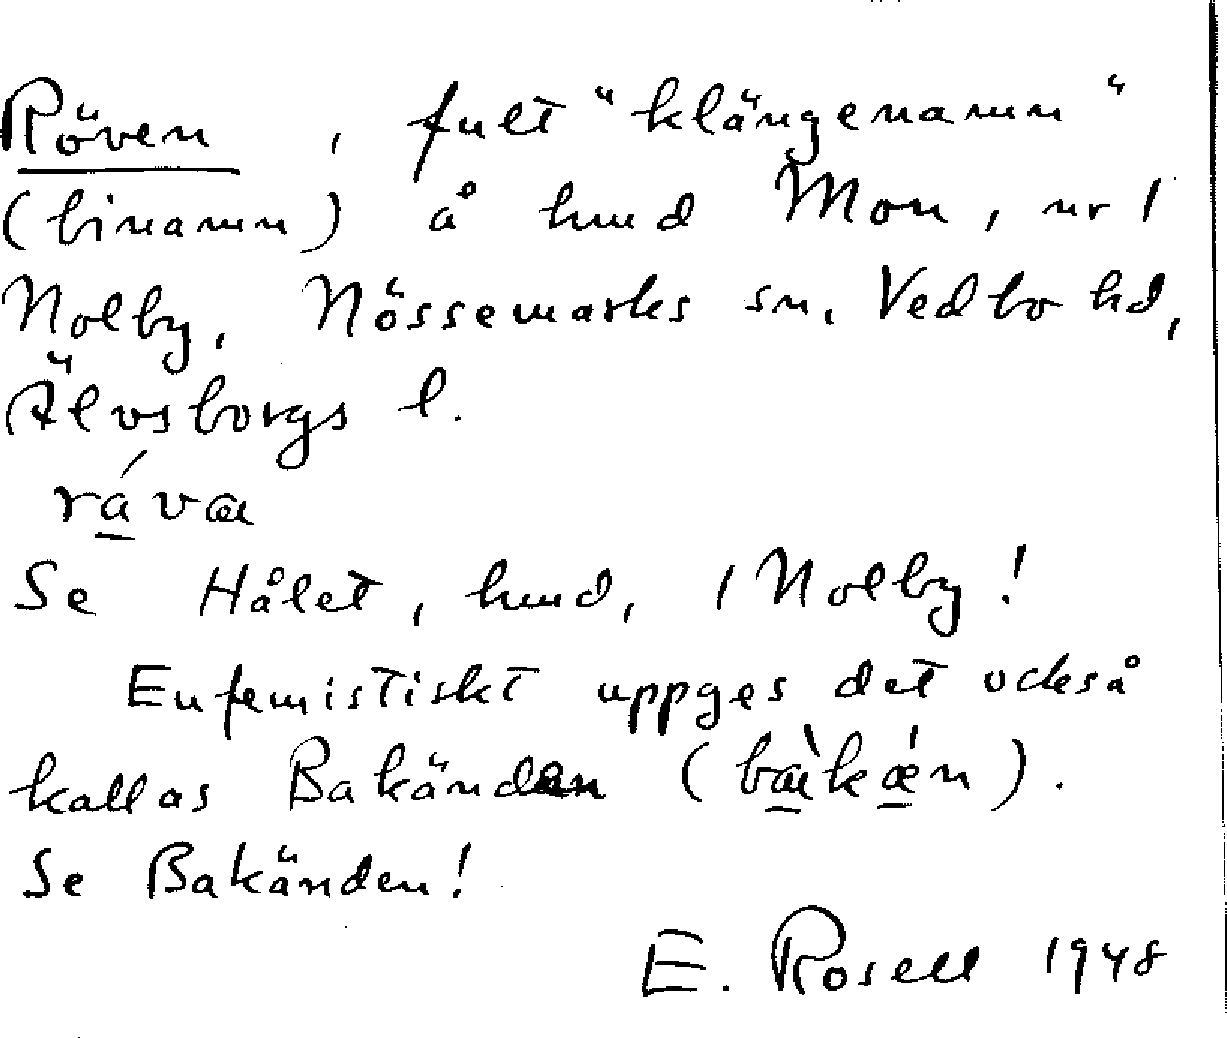 Röven, fult "klängenamn"
(binamn) å hmd Mon, nr 1
Nolby, Nössemarks sn, Vedbo hd,
Älvsborgs l.
Se Hålet, hmd, 1 Nolby!
Eufemistiskt uppges det också
kallas Bakänden (bækæn).
Se Bakänden!
E. Rosell 1948